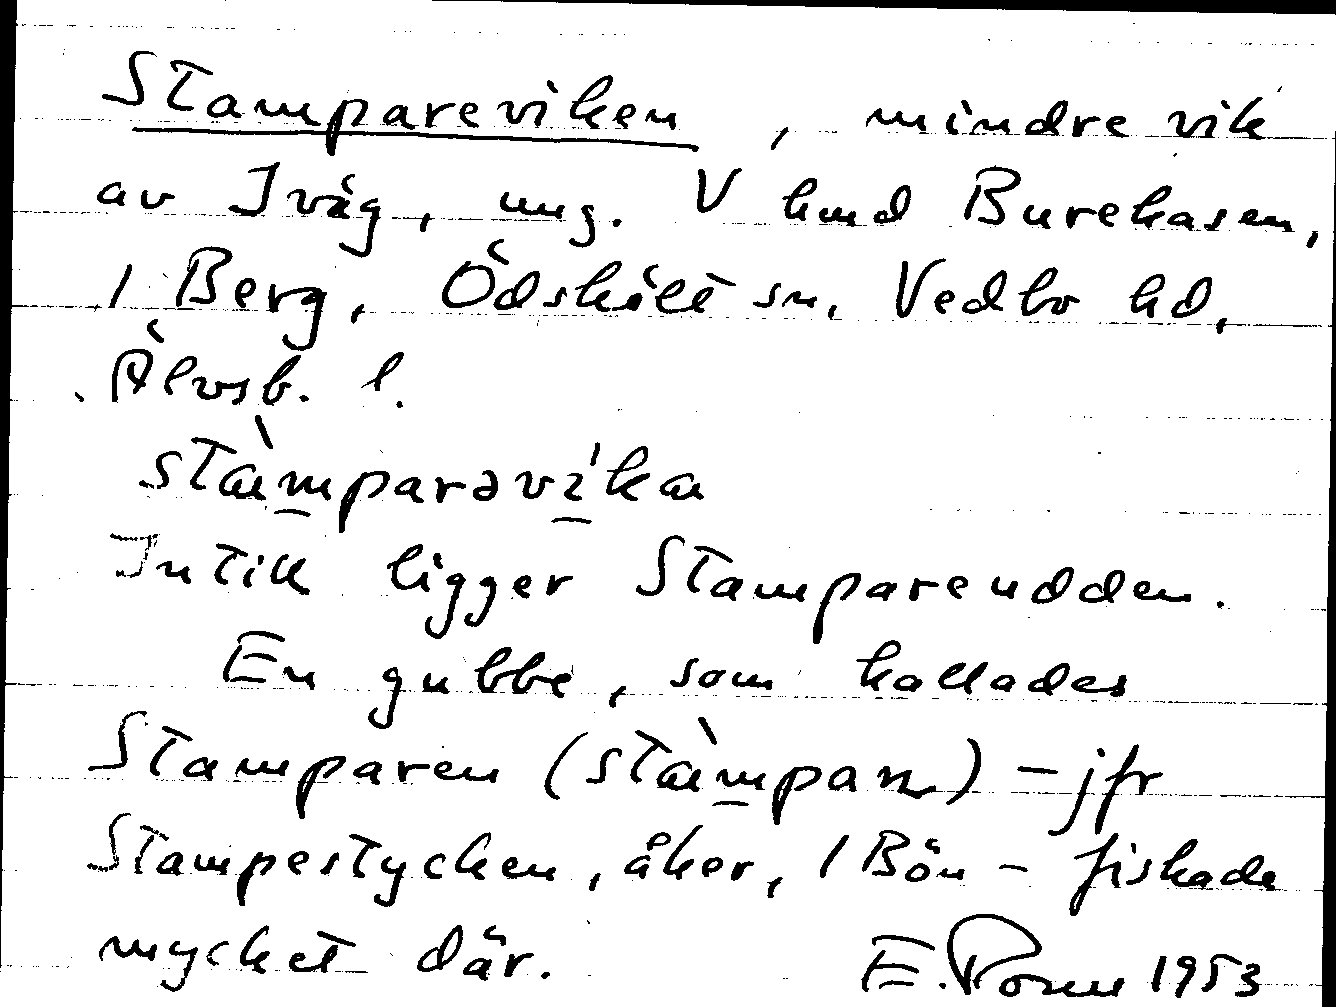 Stampareviken, mindre vik
av Iväg, ung. V kmd Burekasen,
1 Berg, Ödskölt sn, Vedbo hd,
Älvsb. l.
stàmparəvi'ka
Intill ligger Stampareudden.
En gubbe, som kallades
Stamparen (stàmpan) – jfr
Stampestycken, åker, 1 Bön – fiskade
mycket där.
E. 1953